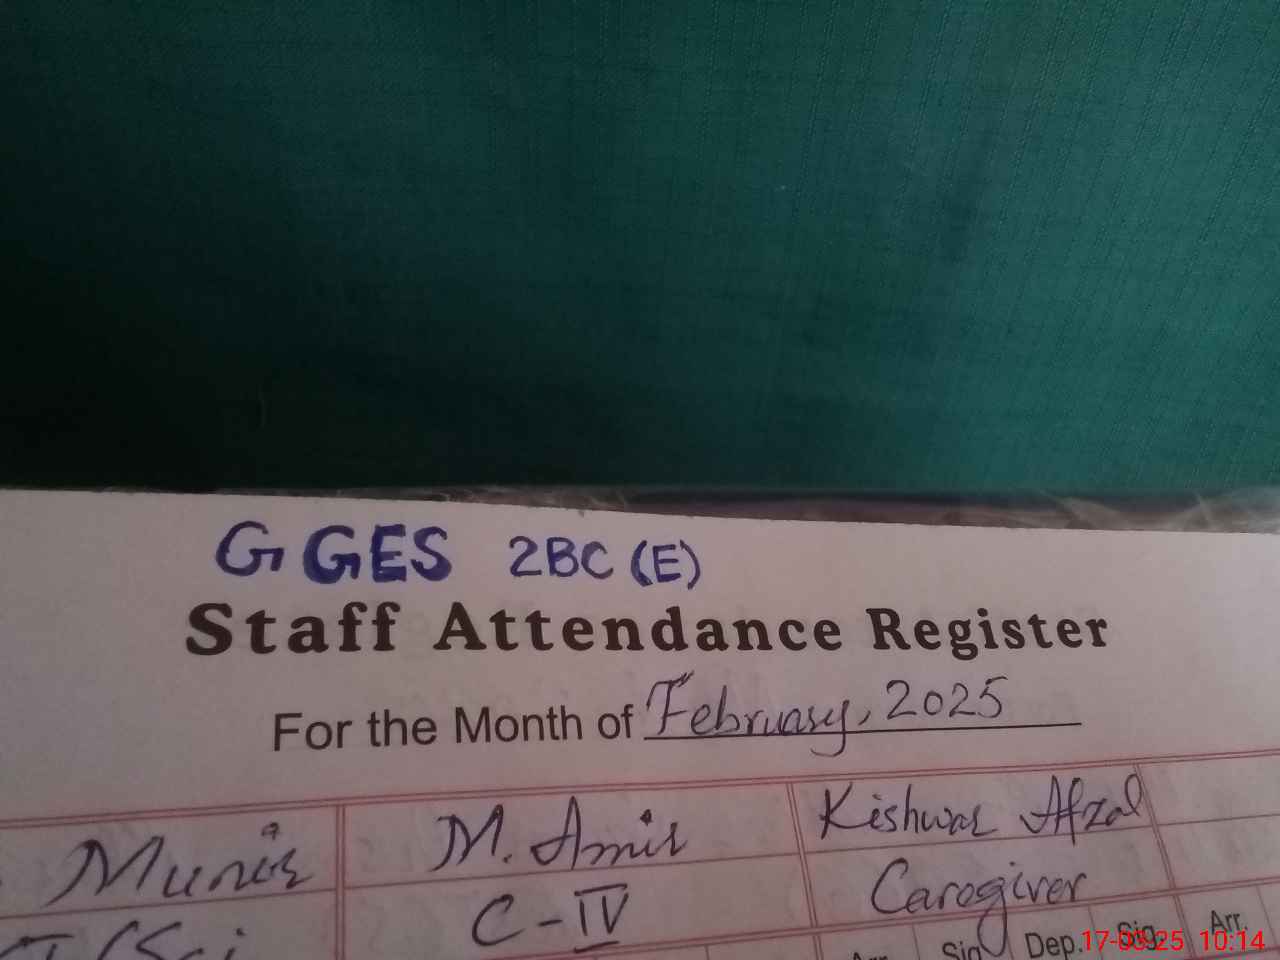 GGES 2BC (E)
Staff Attendance Register
For the Month of February, 2025
Munir M. Amir Kishwar Afzal
C-IV Caregiver
Sig. Dep. Sig. Arr.
17-03-25 10:14